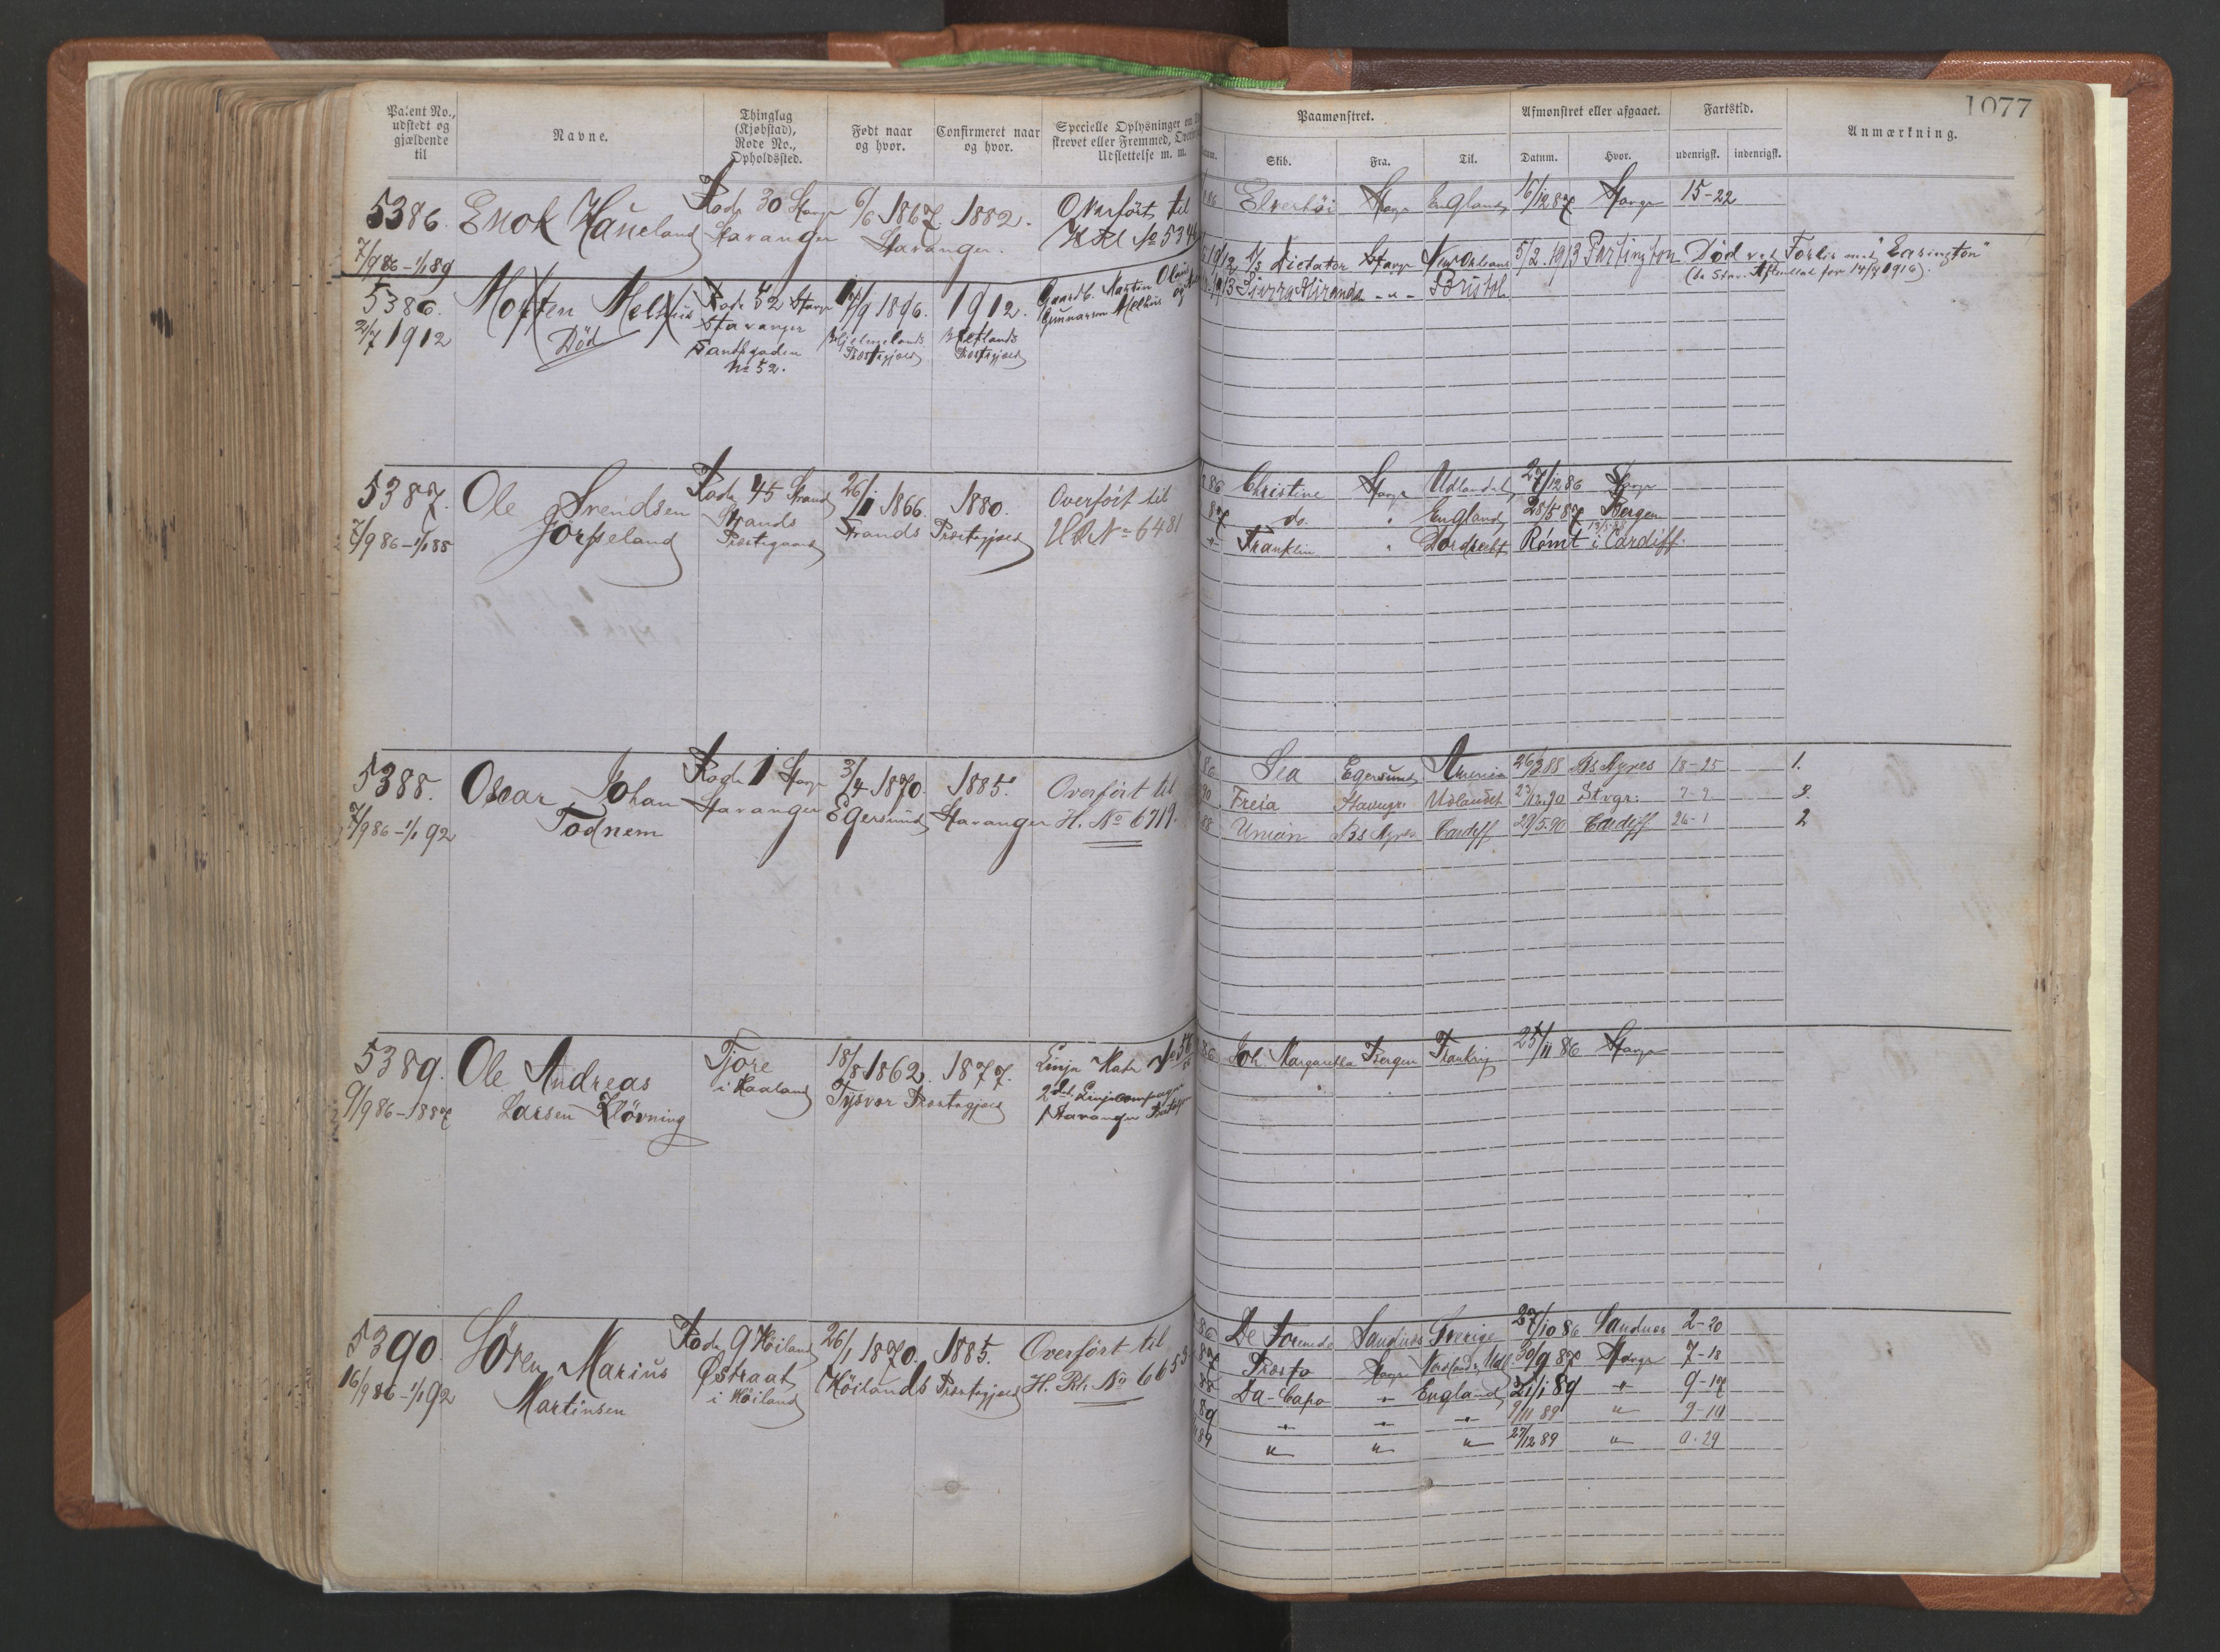 1077
Patent No., udstedt og gjældende til
Navne.
Thinglag (Kjøbstad), Rode No., Opholdssted.
Født naar og hvor.
Confirmeret naar og hvor.
Specielle Oplysninger
skrevet eller Fremmed,
Udslettelse m. m.
Paamønstret.
Skib. Fra. Til.
Afmønstret eller afgaaet.
Datum. Hvor.
Fartstid.
udenrigsk. indenrigsk.
Anmærkning.
5386. Enok Haueland Rode 30 Stavgr 6/6 1867. 1882. Overført til
7/9 86 - 1/1 89 Stavanger Stavanger.
Elverhøi Stavgr England 16/12 87 Stavgr 15-22
5386. Morten Melhus Rode 52 Stavgr 17/9 1896. 1912. Gaardb. Morten
2/7 1912 Død Stavanger Hjelmelands Gunnarson Melhus og
Præstegjæld Præstegjæld
No 52.
S/S Dictator Stavgr New Orleans 5/2 1913 Partington Død ved Forlis med "Easington"
Sierra Miranda - " - Bristol (se Stav. Aftenblad for 14/7 1916).
5387. Ole Svendsen Rode 45 Strand 26/1 1866. 1880. Overført til
7/9 86 - 1/1 88 Jørpeland Strands Strands Præstegjæld HR No 6481
Præstegjæld
Christine Stavgr Udlandet 27/12 86 Stavgr
87 do. " England 28/5 87 Bergen
Franklin " Dordrecht Rømt i Cardiff.
5388. Oscar Johan Rode 1 Stavgr 3/4 1870. 1885. Overført til
7/9 86 - 1/1 92 Todnem Stavanger Egersund Stavanger H. No 6719.
86 Sea Egersund America 26/3 88 Bs Ayres 18-25 1.
90 Freia Stavngr. Udlandet 23/12 90 Stvgr. 7-9 3.
88 Union Bs Ayres Cardiff 29/5 90 Cardiff 26-1 2
5389. Ole Andreas Tjore 18/8 1862. 1877. Linje
9/9 86 - 1887 Larsen Kløvning i Haaland Tysvær Præstegjæld 2det Linjecompagni
Stavanger
86 Joh. Margaretha Bergen Frankrig 25/11 86 Stavgr
5390. Sören Marius Rode 9 Høiland 26/1 1870. 1885. Overført til
16/9 86 - 1/1 92 Martinsen Østraat Høilands Præstegjæld H. Rl. No 6653
i Høiland
86 De Svende Sandnes Sverige 27/10 86 Sandnes 2-20
87 Stavgr 30/9 87 Stavgr 7-18
88 Da-Capo " England 21/1 89 " 9-17
89 " " " 9/11 89 " 9-10
89 " " " 27/12 89 " 0-29